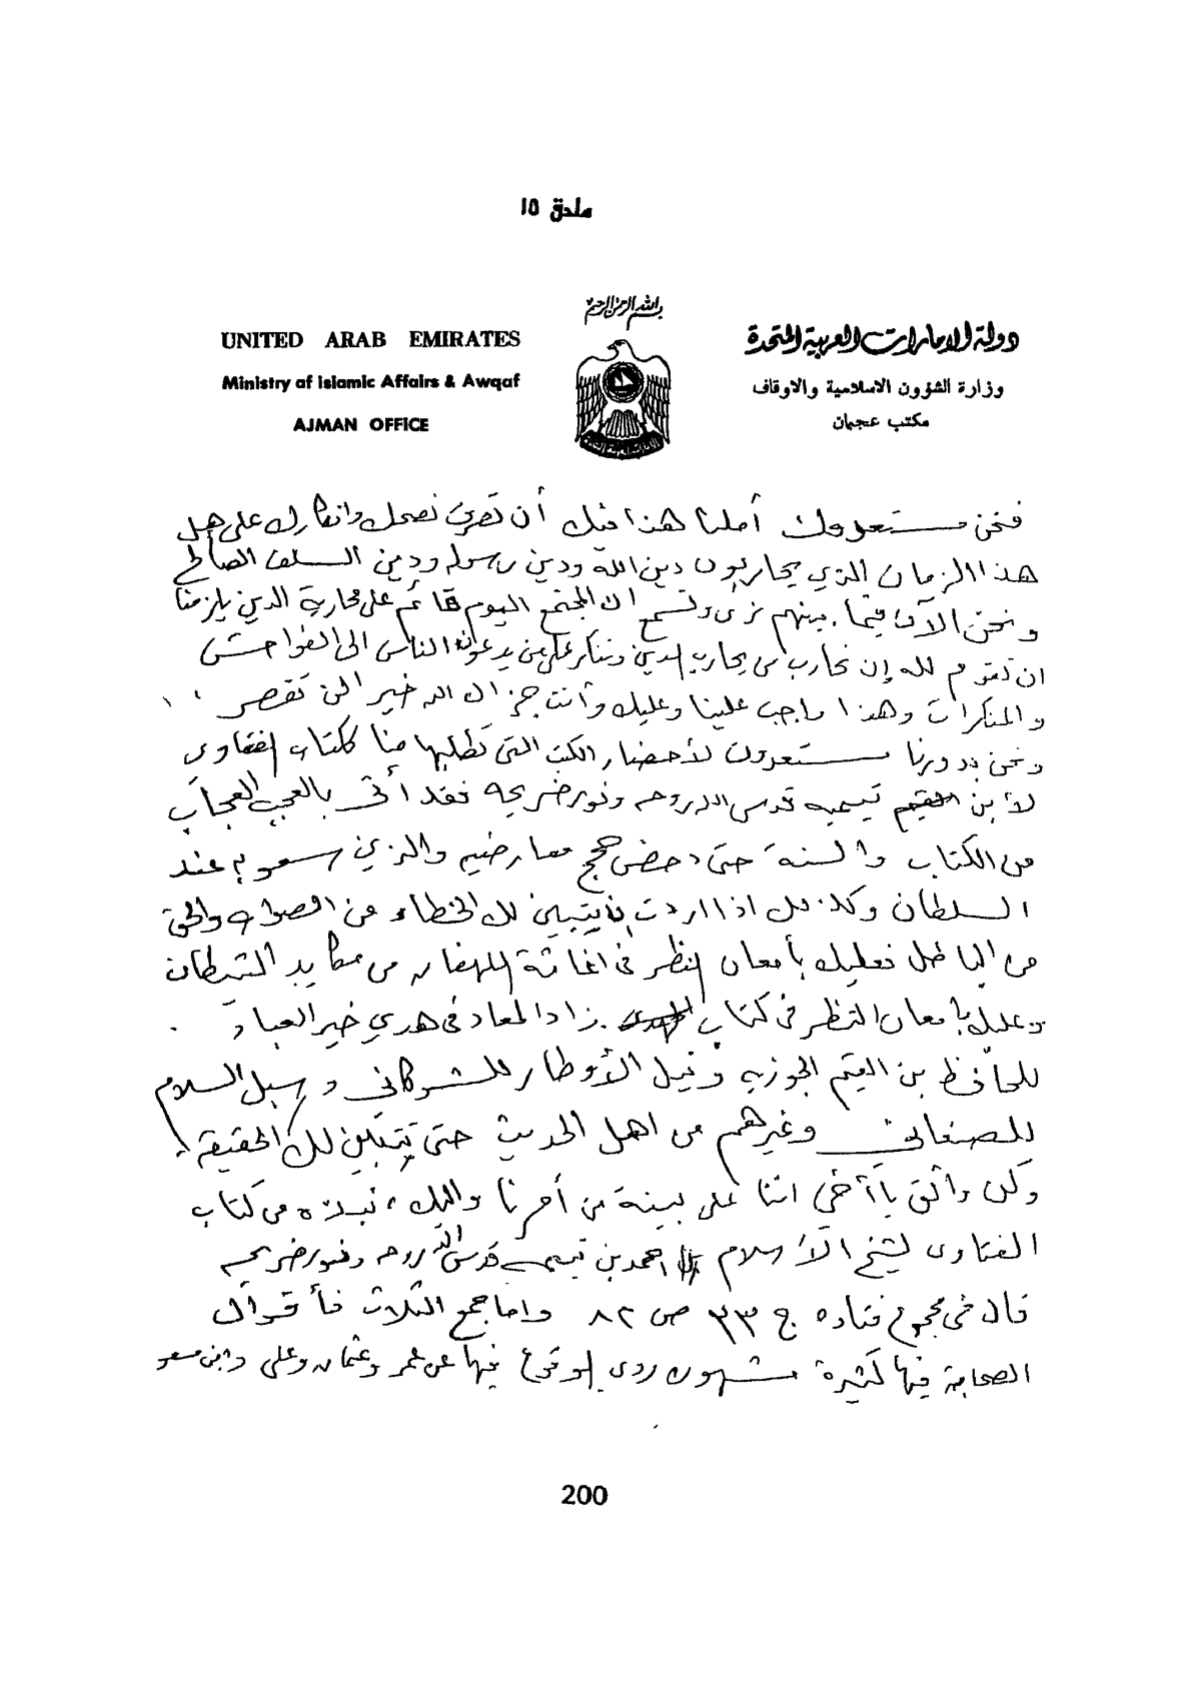 ملحق ١٥
بسم الله الرحمن الرحيم
UNITED ARAB EMIRATES
Ministry of Islamic Affairs & Awqaf
AJMAN OFFICE
دولة الامارات العربية المتحدة
وزارة الشؤون الاسلامية والاوقاف
مكتب عجمان
فنحن مستعدون أملنا هذا منك أن نصحك وانكارك على
هذا الزمان الذي يحاربون دين الله ودين رسوله ودين السلف الصالح
ونحن الآن فيما بينهم نرى ونسمع ان المجتمع اليوم قائم على محاربة الدين يلزمنا
ان نقوم لله إن نحارب من يحارب الدين وننكر على من يدعون الناس الى الفواحش
والمنكرات وهذا واجب علينا وعليك وأنت جزاك الله خير الن تقصر
ونحن بدورنا مستعدون لأحضار الكتب التي تطلبها منا ككتاب الفتاوى
لأبن تيميه قدس الله روحه ونور ضريحه فقد أتى بالعجب العجاب
من الكتاب والسنة حتى دحض حجج معارضيه والذين سعوا به عند
السلطان وكذلك اذا اردت يتبين لك الخطاء من الصواب والحق
من الباطل فعليك بأمعان النظر في اغاثة اللهفان من مكايد الشيطان
وعليك بأمعان النظر في كتاب زاد المعاد في هدي خير العباد
للحافظ بن القيم الجوزيه ونيل الأوطار للشوكاني وسبل السلام
للصنعاني وغيرهم من اهل الحديث حتى تتبين لك الحقيقة
وكن واثق ياأخي اننا على بينة من أمرنا واليك نبذه من كتاب
الفتاوى لشيخ الأسلام احمد بن تيميه قدس الله روحه ونور ضريحه
قال في مجموع فتاده ج ٣٣ ص ٨٢ واما جمع الثلاث فأقوال
الصحابة فيها كثيرة مشهوره روى الوقوع فيها عن عمر وعثمان وعلى وابن مسعو
200